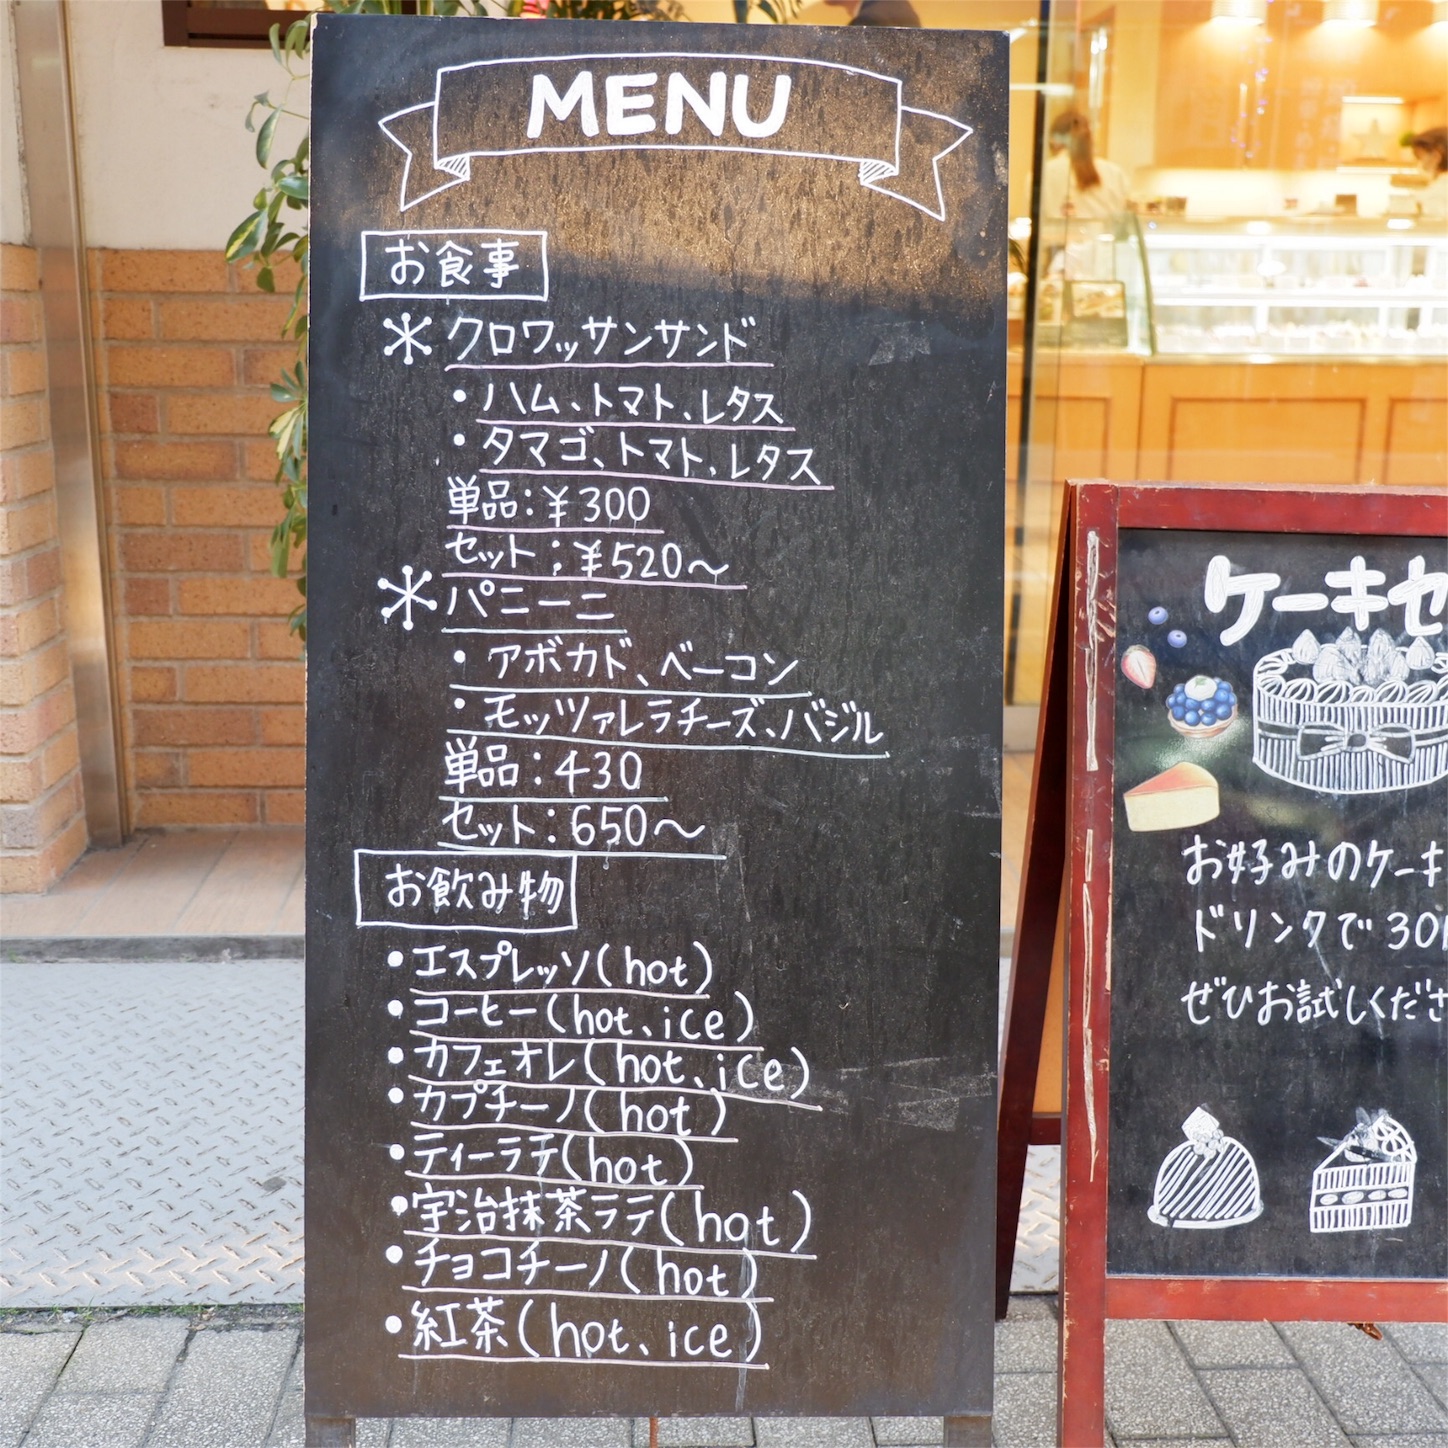 MENU
お食事
クロワッサンサンド
・ハム、トマト、レタス
・タマゴ、トマト、レタス
単品:¥300
セット:¥520〜
パニーニ
・アボカド、ベーコン
・モッツァレラチーズ、バジル
単品:430
セット:650〜
お飲み物
・エスプレッソ(hot)
・コーヒー(hot、ice)
・カフェオレ(hot、ice)
・カプチーノ(hot)
・ティーラテ(hot)
・宇治抹茶ラテ(hot)
・チョコチーノ(hot)
・紅茶(hot、ice)
ケーキセ
お好みのケーキ
ドリンクで30
ぜひお試しくださ